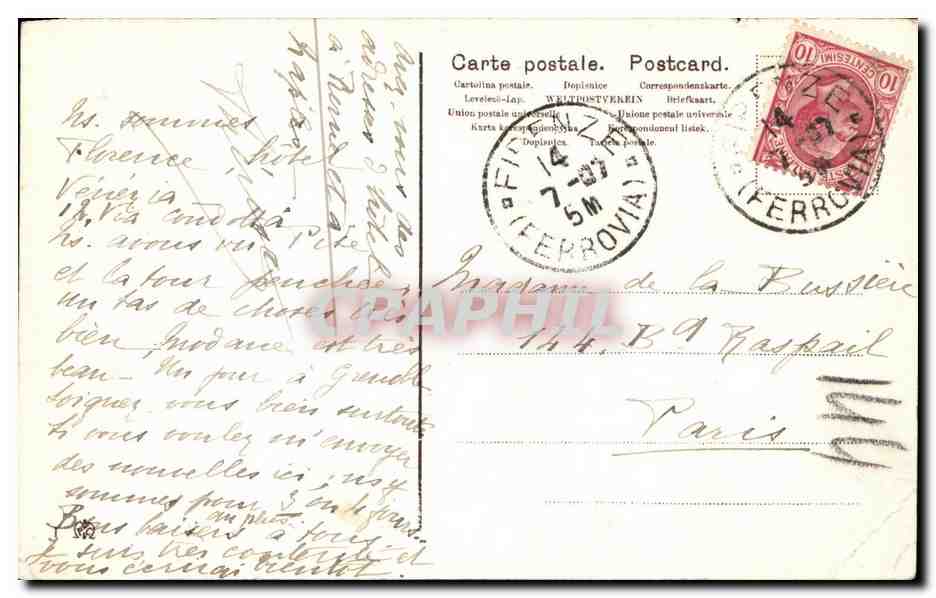 Carte postale. Postcard.
Cartolina postale. Dopisnice Correspondenzkarte.
Levelezö-Lap. WELTPOSTVEREIN Briefkaart.
Union postale universelle Unione postale universale
Karta korespondencyjna Korespondencni listek.
Dopisnica. Tarjeta postale.
FIRENZE
14
7-07
5M
(FERROVIA)
10 CENTESIMI 10
FIRENZE
14
(FERROVIA)
avez-vous
adresse d'hôtel
à
Ns. sommes à
Florence, hôtel
Venezia
12 Via condotta
Ns. avons vu Pise
et la tour penchée,
un tas de choses très
bien, Modane est très
beau - Un jour à Grenoble
soignez vous bien surtout
si vous voulez m'envoyer
des nouvelles ici, ns y
sommes pour 3 ou 4 jours
au plus.
Bons baisers à tous
je suis très contente et
vous écrirai bientôt.
Madame de la Bussière
144, Bd Raspail
Paris
CPAPHIL